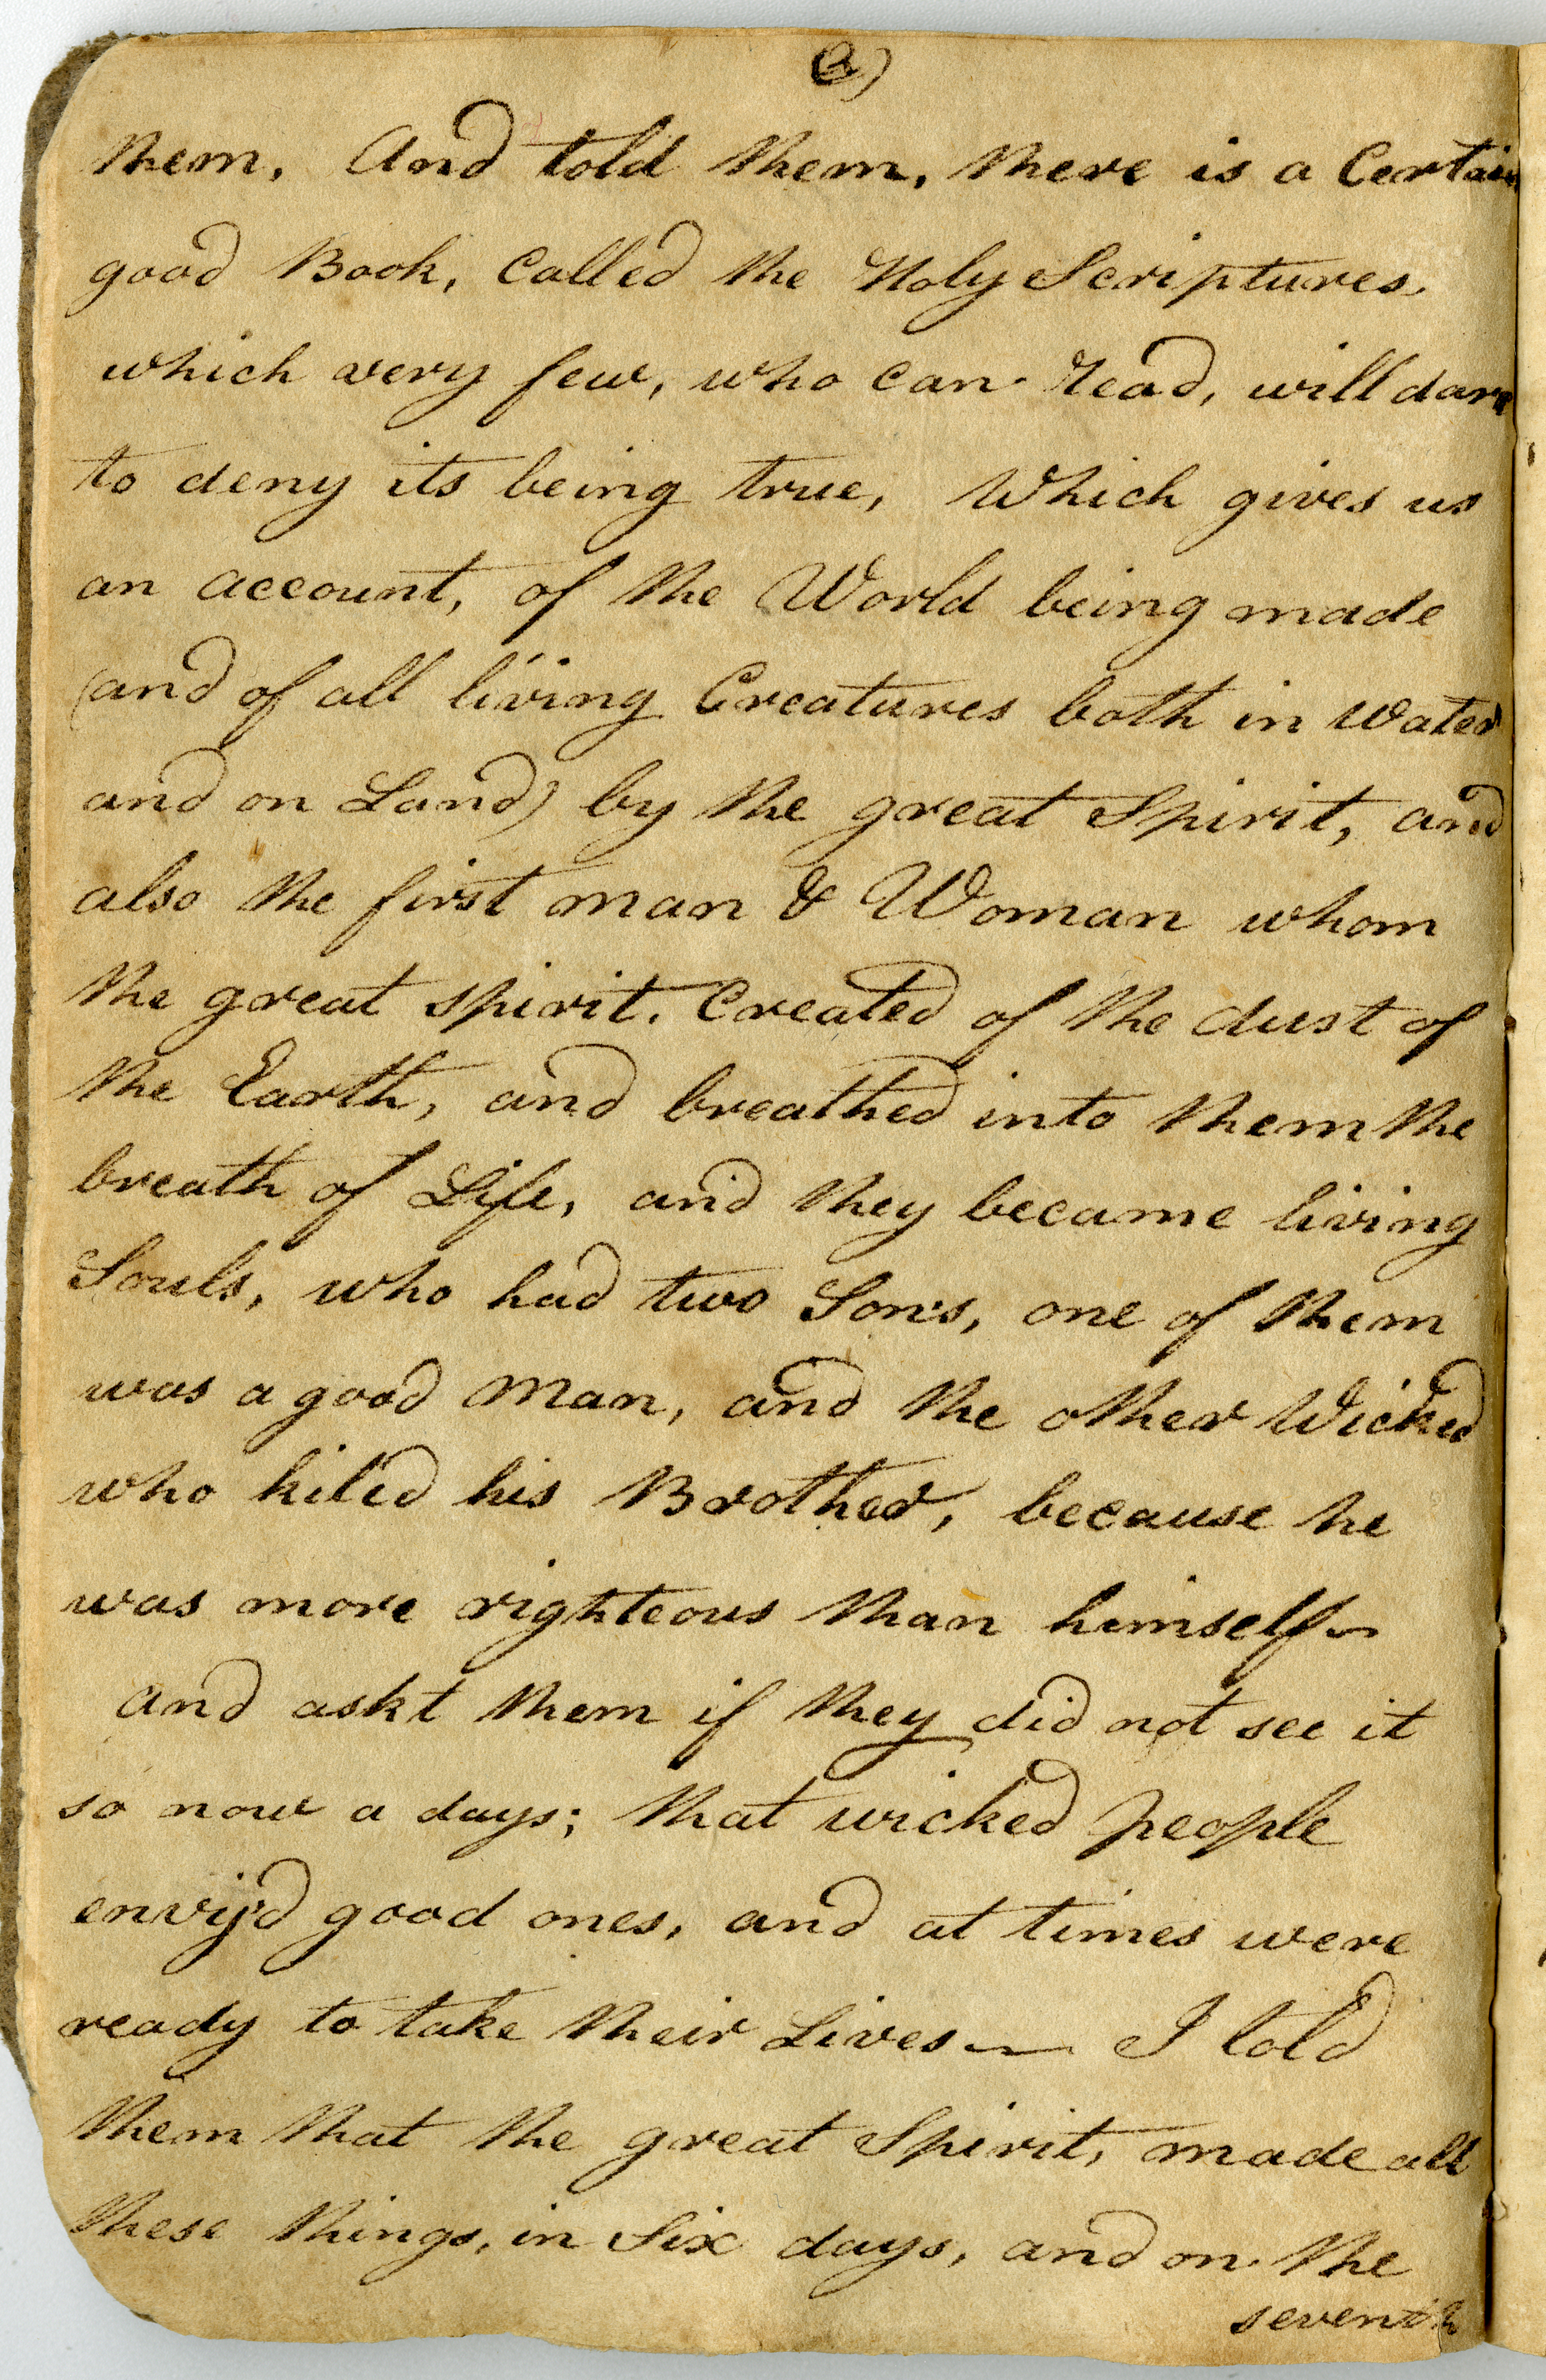 2)
them, And told them, there is a Certain
good Book, Called the Holy Scriptures,
which very few, who Can read, will dare
to deny its being true, Which gives us
an account, of the World being made
(and of all living Creatures both in Water
and on Land) by the great Spirit, and
also the first man & Woman whom
the great spirit, Created of the dust of
the Earth, and breathed into them the
breath of Life, and they became living
Souls, who had two Sons, one of them
was a good Man, and the other Wicked
who kiled his Brother, because he
was more righteous than himself ~
and askt them if they did not see it
so now a days; that wicked people
envy'd good ones, and at times were
ready to take their Lives — I told
them that the great Spirit, made all
these things, in Six days, and on the
seventh